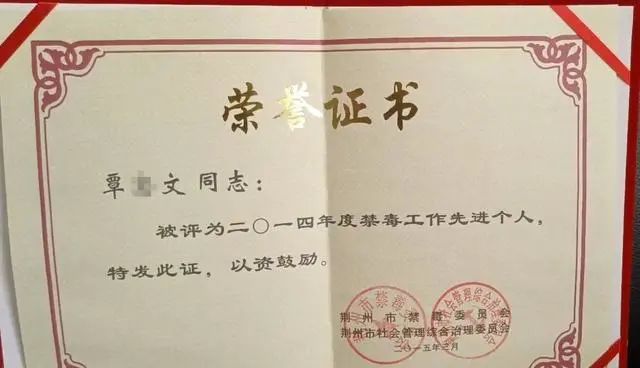 荣誉证书
覃 文同志：
被评为二〇一四年度禁毒工作先进个人，
特发此证，以资鼓励。
荆州市禁毒委员会
荆州市社会管理综合治理委员会
二〇一五年二月